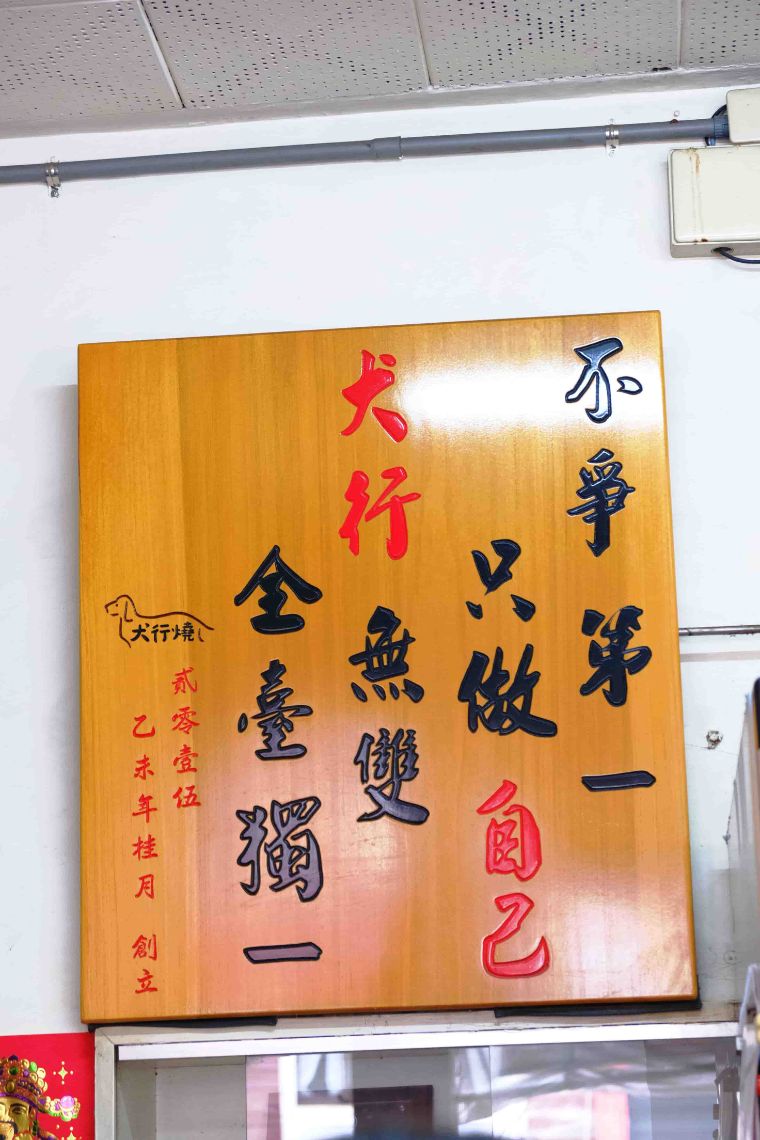 不爭第一
只做自己
犬行無雙
全臺獨一
犬行燒
貳零壹伍
乙未年桂月 創立